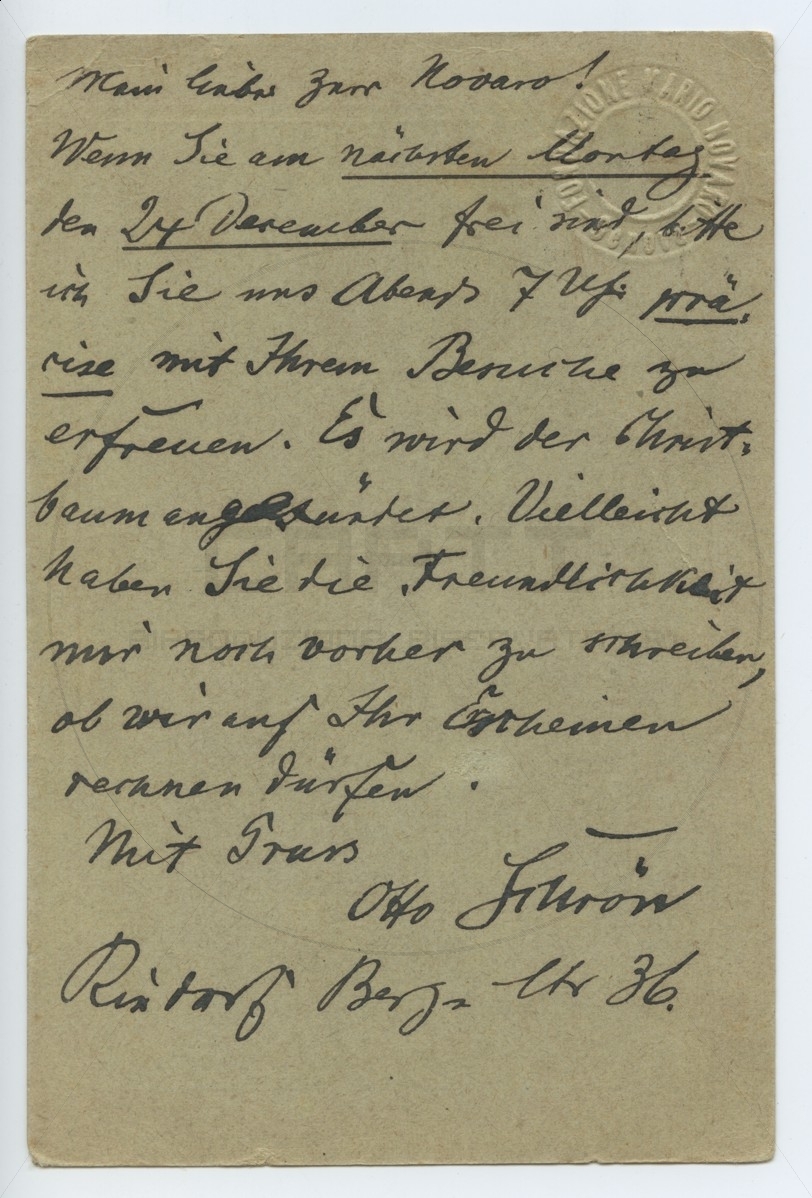 Mein lieber Herr Novaro!
Wenn Sie am nächsten Montag
den 24 December frei sind, bitte
ich Sie uns Abends 7 Uhr prä-
cise mit Ihrem Besuche zu
erfreuen. Es wird der Christ-
baum angezündet. Vielleicht
haben Sie die Freundlichkeit
mir noch vorher zu schreiben,
ob wir auf Ihr Erscheinen
rechnen dürfen.
Mit Gruss
Otto
Rixdorf Berg-Str 36.
FONDAZIONE MARIO NOVARO